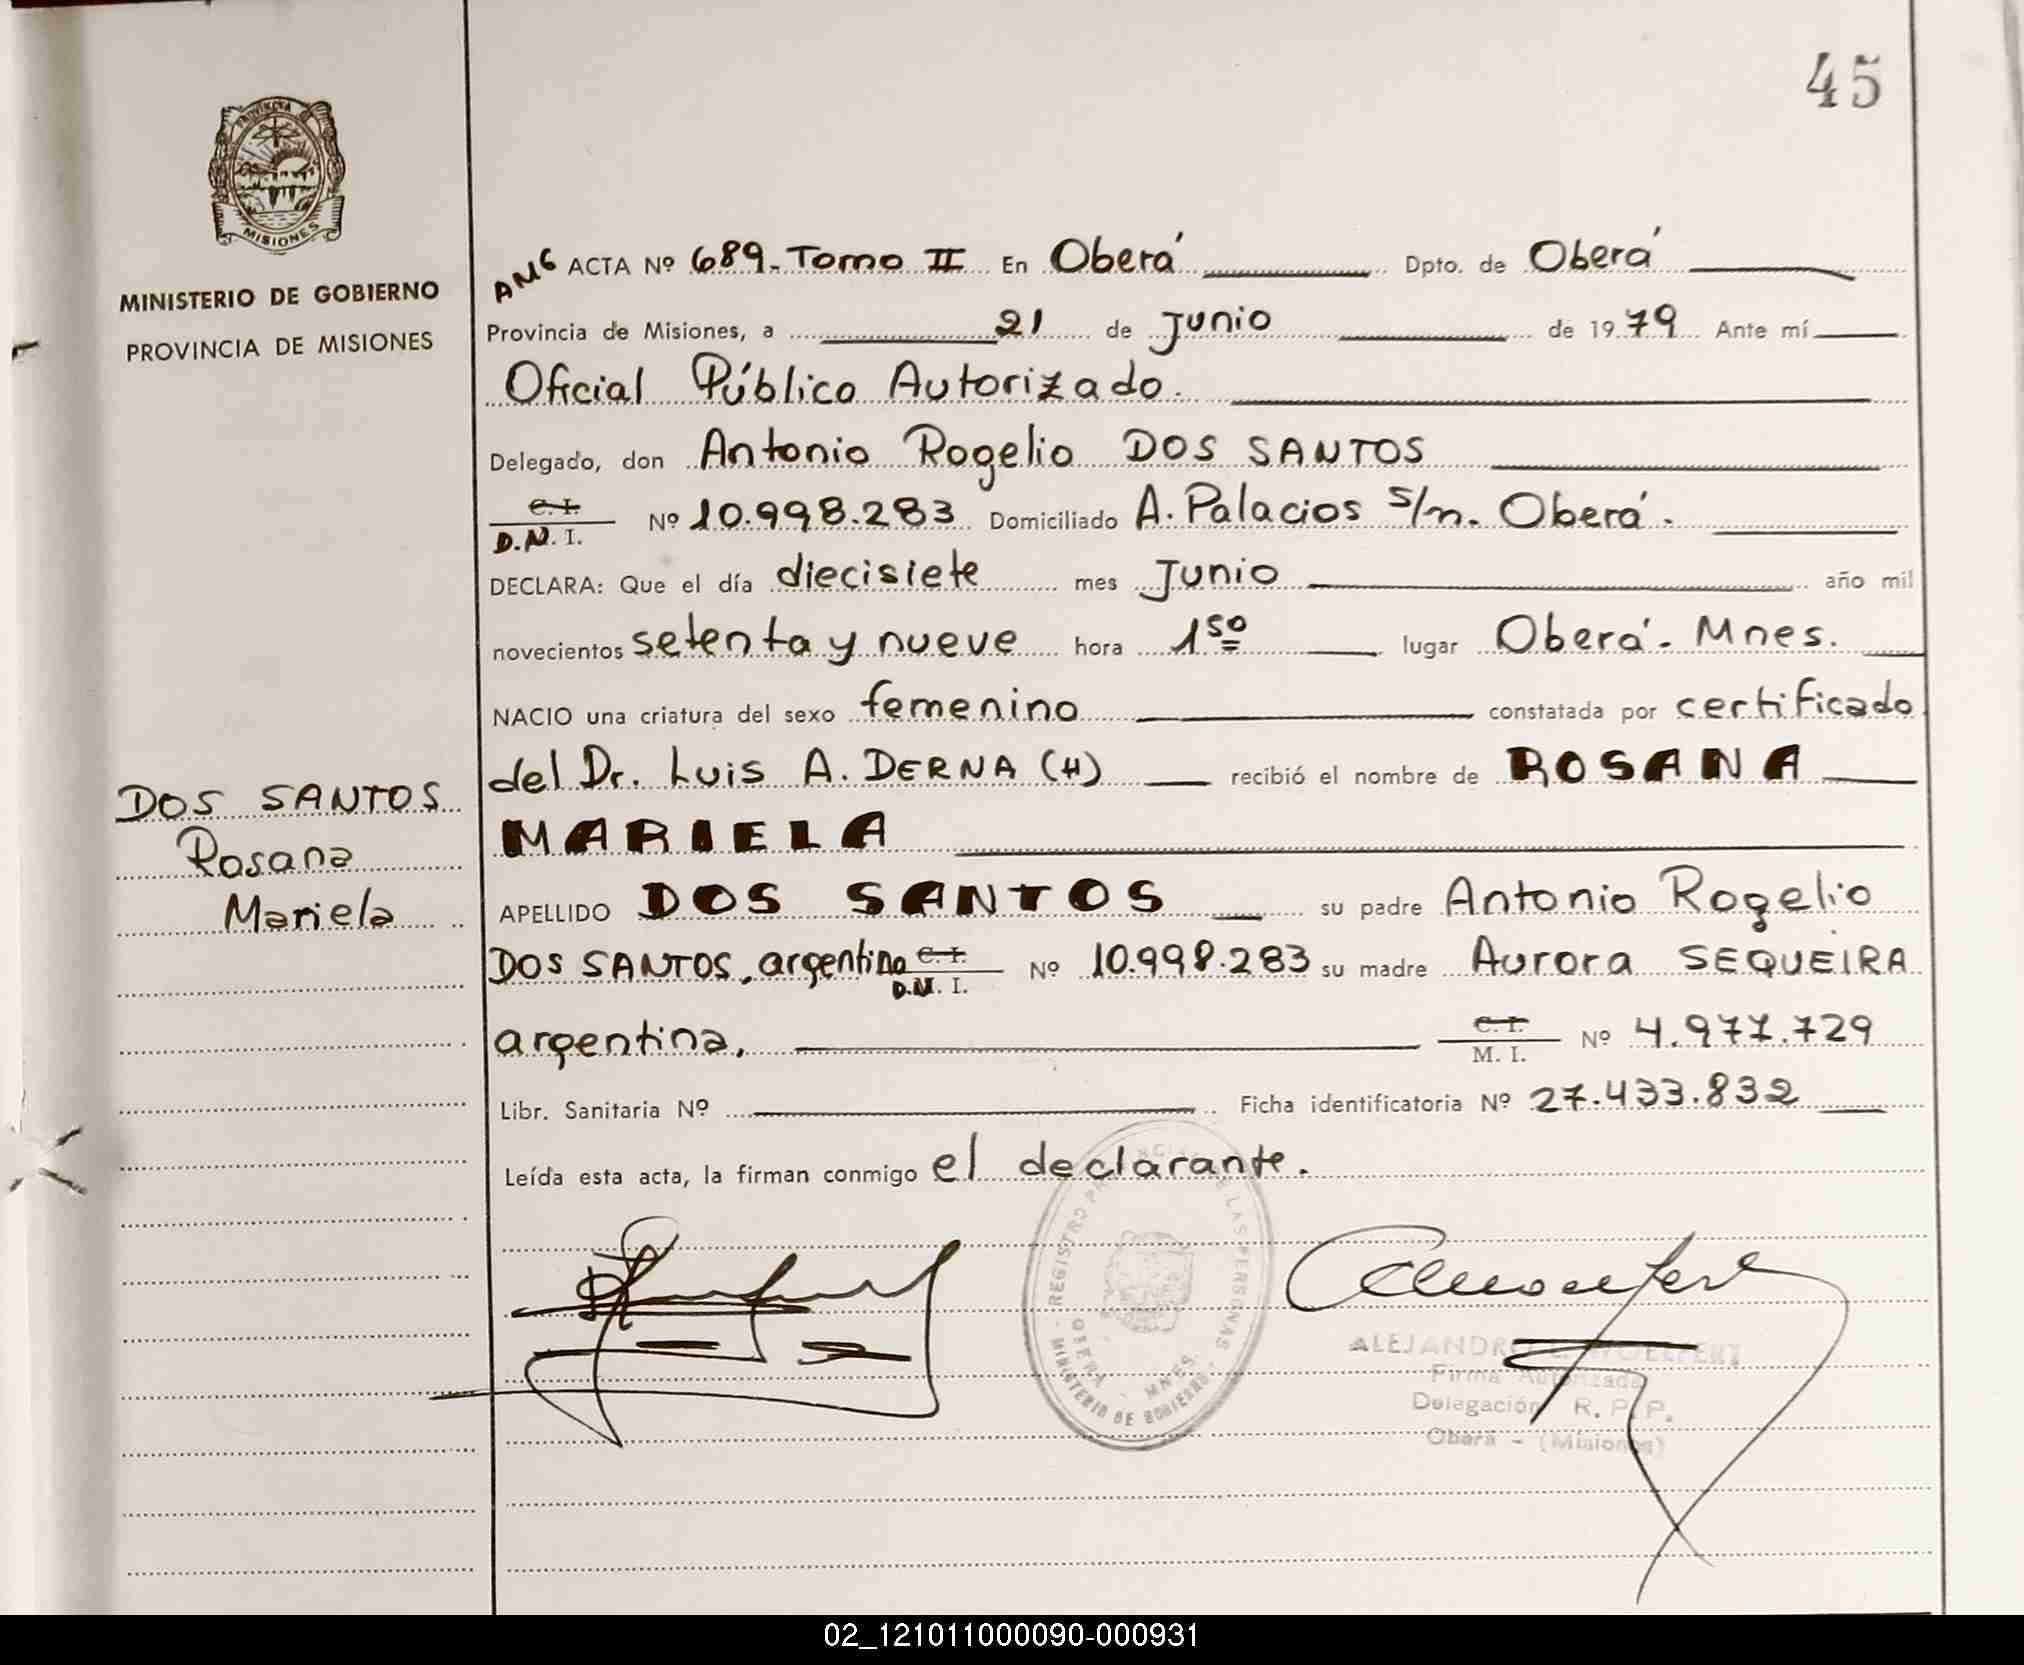 45
PROVINCIA DE
MISIONES
MINISTERIO DE GOBIERNO
PROVINCIA DE MISIONES
DOS SANTOS
Rosana
Mariela
AMG ACTA Nº 689-Tomo II En Oberá Dpto. de Oberá
Provincia de Misiones, a 21 de Junio de 1979 Ante mí
Oficial Público Autorizado.
Delegado, don Antonio Rogelio DOS SANTOS
C. I.
D.N. I. Nº 10.998.283 Domiciliado A. Palacios s/n. Oberá.
DECLARA: Que el día diecisiete mes Junio año mil
novecientos setenta y nueve hora 1 50 lugar Oberá. Mnes.
NACIO una criatura del sexo femenino constatada por certificado
del Dr. Luis A. DERNA (H) recibió el nombre de ROSANA
MARIELA
APELLIDO DOS SANTOS su padre Antonio Rogelio
DOS SANTOS, argentino C. I. Nº 10.998.283 su madre Aurora SEQUEIRA
D.N. I.
argentina, C. I. Nº 4.977.729
M. I.
Libr. Sanitaria Nº Ficha identificatoria Nº 27.433.832
Leída esta acta, la firman conmigo el declarante.
REGISTRO PROVINCIAL DE LAS PERSONAS
OBERA - MNES.
MINISTERIO DE GOBIERNO
ALEJANDRO WOELFERT
Firma Autorizada
Delegación R. P. P.
Oberá - (Misiones)
02_121011000090-000931